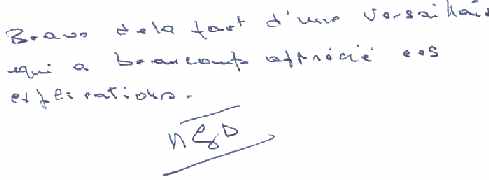 Bravo de la part d'une Versaillaise
qui a beaucoup apprécié ces
explications.